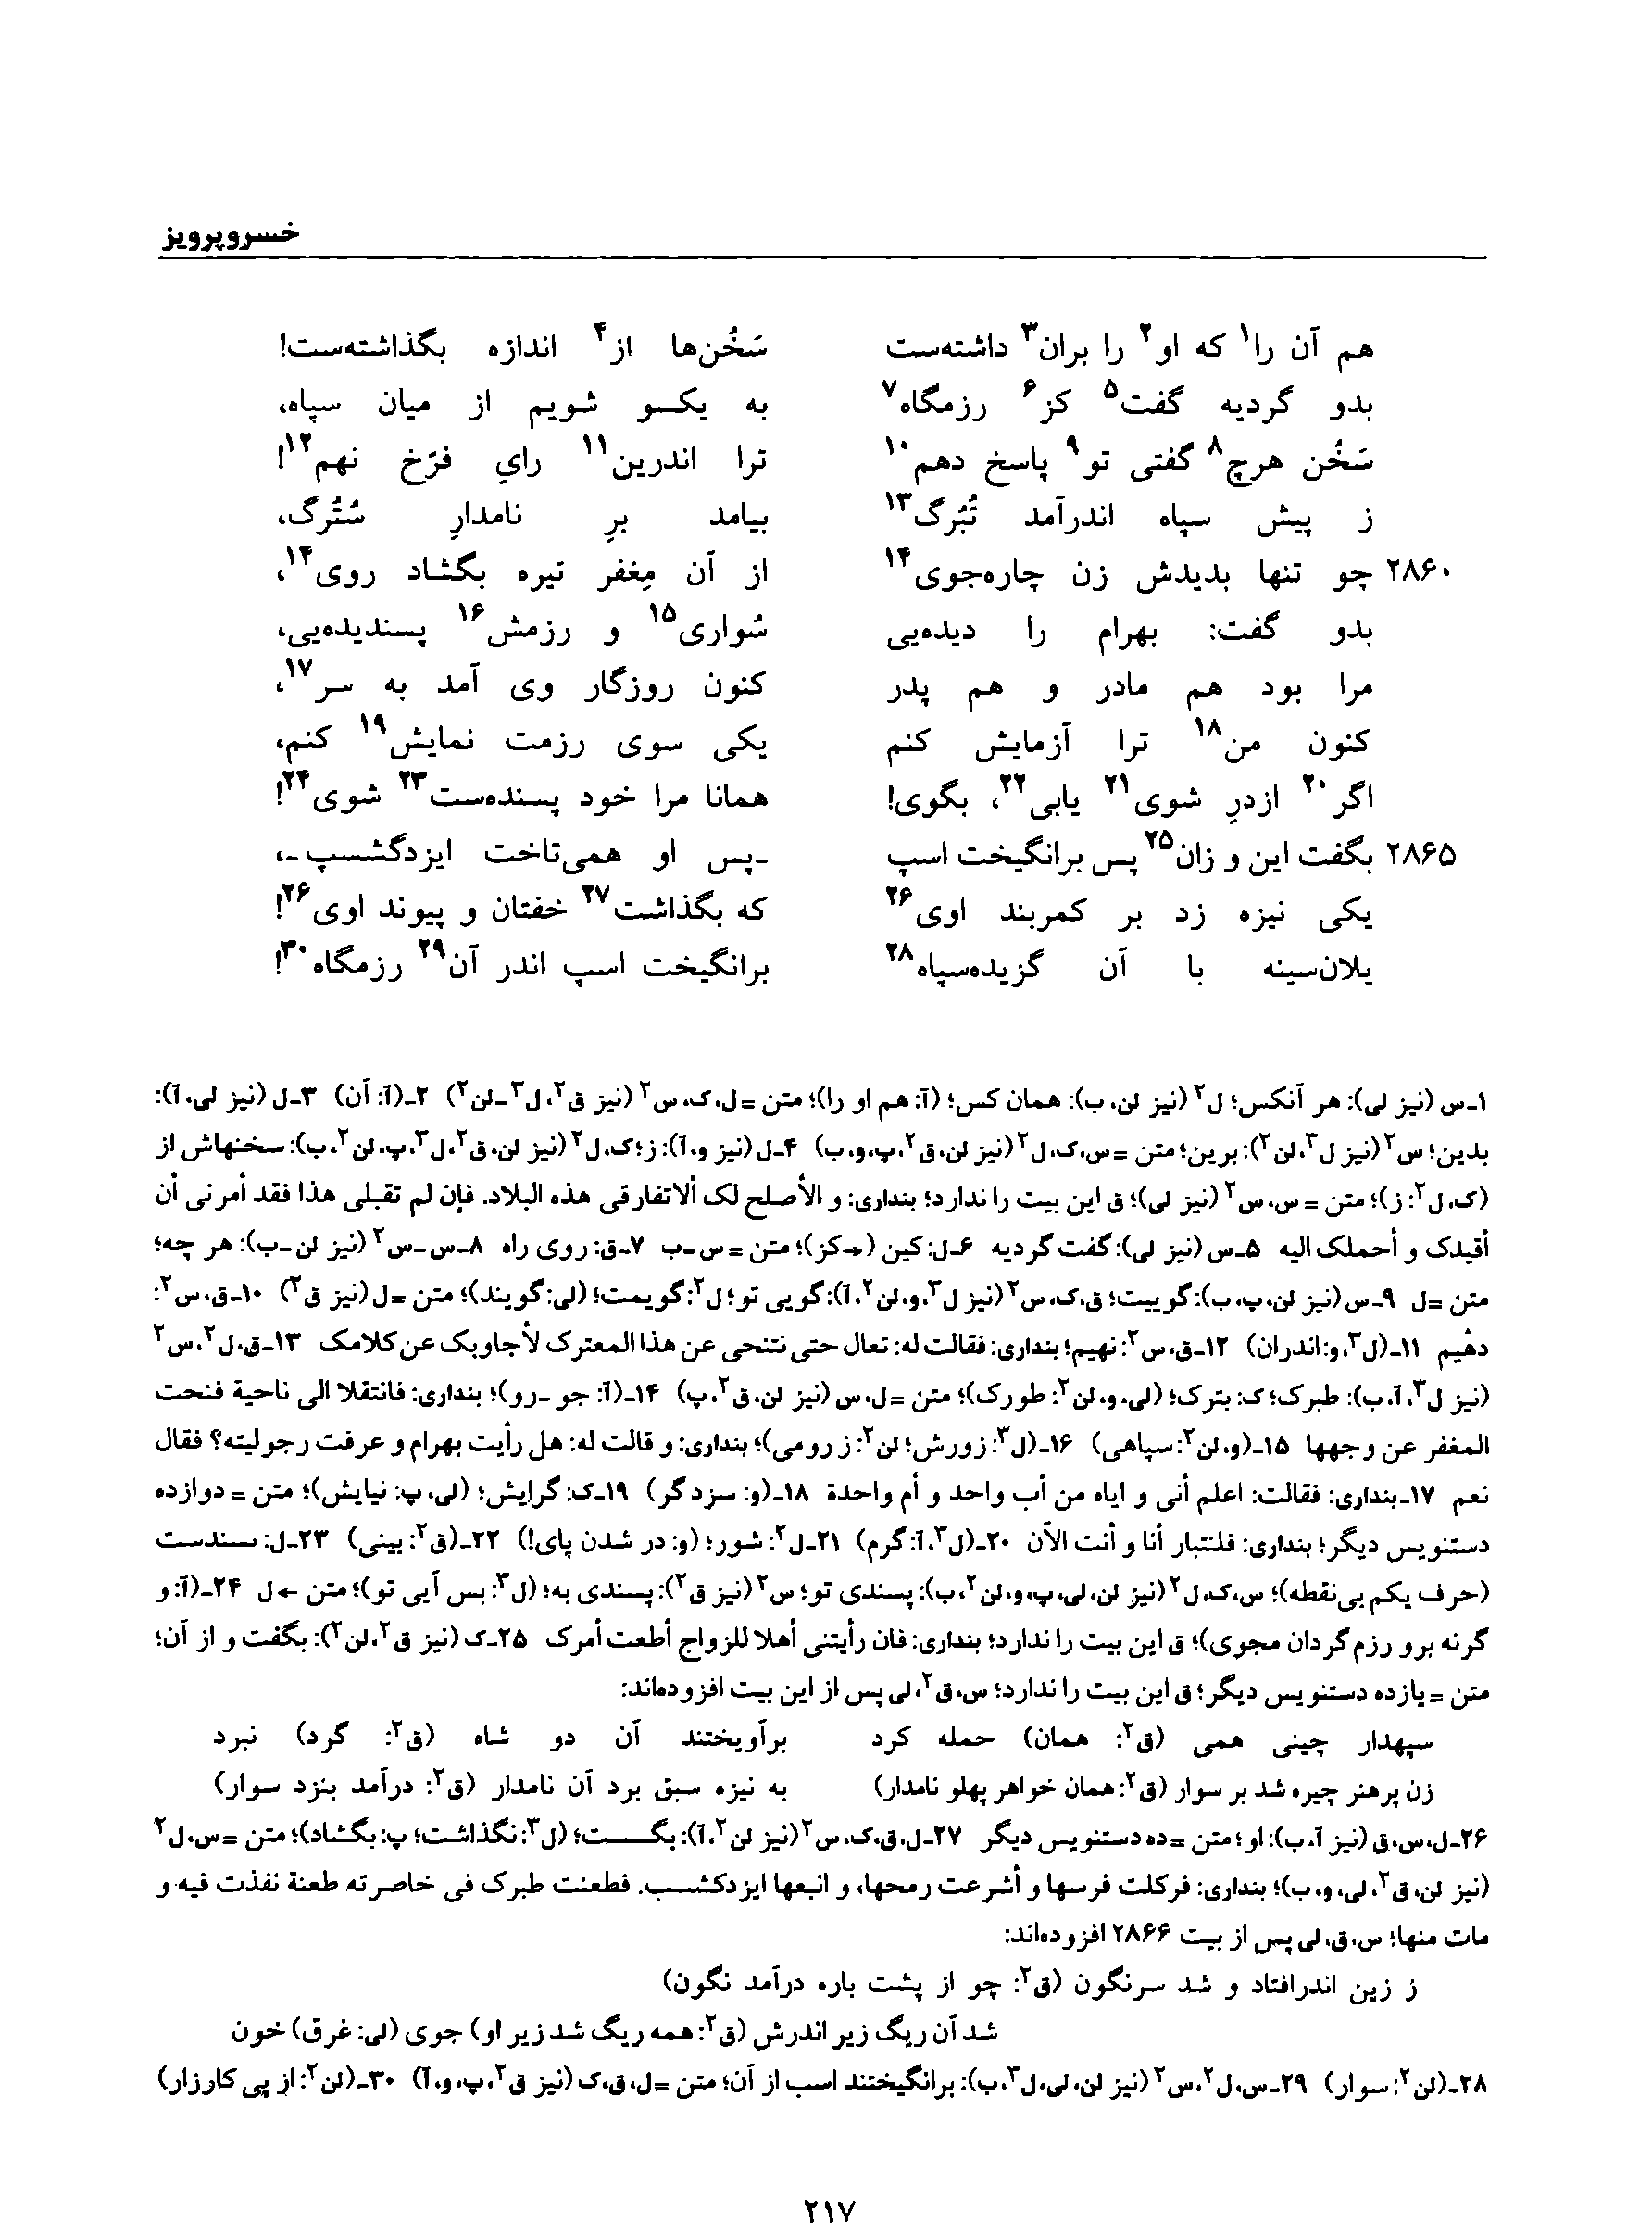 خسروپرویز
هم آن را۱ که او۲ را بران۳ داشته‌ست سَخُن‌ها از۴ اندازه بگذاشته‌ست!
بدو گردیه گفت۵ کز۶ رزمگاه۷ به یکسو شویم از میان سپاه،
سَخُن هرچ۸ گفتی تو۹ پاسخ دهم۱۰ ترا اندرین۱۱ رایِ فرّخ نهم۱۲!
ز پیش سپاه اندرآمد تُبُرگ۱۳ بیامد برِ نامدارِ سُتُرگ،
۲۸۶۰ چو تنها بدیدش زن چاره‌جوی۱۴ از آن مِغفر تیره بگشاد روی۱۴،
بدو گفت: بهرام را دیده‌یی سُواری۱۵ و رزمش۱۶ پسندیده‌یی،
مرا بود هم مادر و هم پدر کنون روزگار وی آمد به سر۱۷،
کنون من۱۸ ترا آزمایش کنم یکی سوی رزمت نمایش۱۹ کنم،
اگر۲۰ ازدرِ شوی۲۱ یابی۲۲، بگوی! همانا مرا خود پسنده‌ست۲۳ شوی۲۴!
۲۸۶۵ بگفت این و زان۲۵ پس برانگیخت اسپ -پس او همی‌تاخت ایزدگشسپ-،
یکی نیزه زد بر کمربند اوی۲۶ که بگذاشت۲۷ خفتان و پیوند اوی۲۶!
یلان‌سینه با آن گزیده‌سپاه۲۸ برانگیخت اسپ اندر آن۲۹ رزمگاه۳۰!
۱-س (نیز لی): هر آنکس؛ ل۲ (نیز لن، ب): همان کس؛ (آ: هم او را)؛ متن =ل،ک، س۲ (نیز ق۲، ل۳-لن۲) ۲-(آ: آن) ۳-ل (نیز لی، آ):
بدین؛ س۲ (نیز ل۳،لن۲): برین؛ متن =س،ک،ل۲ (نیز لن،ق۲،پ،و،ب) ۴-ل (نیز و،آ): ز؛ ک،ل۲ (نیز لن،ق۲،ل۳،پ،لن۲،ب): سخنهاش از
(ک،ل۲: ز)؛ متن = س، س۲ (نیز لی)؛ ق این بیت را ندارد؛ بنداری: و الأصلح لک ألاتفارقی هذه البلاد. فإن لم تقبلی هذا فقد أمرنی أن
أقیدک و أحملک الیه ۵-س (نیز لی): گفت گردیه ۶-ل: کین (→کز)؛ متن = س-ب ۷-ق: روی راه ۸-س-س۲ (نیز لن-ب): هر چه؛
متن =ل ۹-س (نیز لن،پ،ب): گوییت؛ ق،ک، س۲ (نیز ل۳،و،لن۲،آ): گویی تو؛ ل۲: گویمت؛ (لی: گویند)؛ متن =ل (نیز ق۲) ۱۰-ق، س۲:
دهیم ۱۱-(ل۳،و: اندران) ۱۲-ق، س۲: نهیم؛ بنداری: فقالت له: تعال حتی نتنحی عن هذا المعترک لأجاوبک عن کلامک ۱۳-ق،ل۲،س۲
(نیز ل۳، آ، ب): طبرک؛ ک: بترک؛ (لی،و،لن۲: طورک)؛ متن =ل، س (نیز لن، ق۲، پ) ۱۴-(آ: جو-رو)؛ بنداری: فانتقلا الی ناحیة فنحت
المغفر عن وجهها ۱۵-(و،لن۲: سپاهی) ۱۶-(ل۳: زورش؛ لن۲: ز رومی)؛ بنداری: و قالت له: هل رأیت بهرام و عرفت رجولیته؟ فقال
نعم ۱۷-بنداری: فقالت: اعلم أنی و ایاه من أب واحد و أم واحدة ۱۸-(و: سزد گر) ۱۹-ک: گرایش؛ (لی، پ: نیایش)؛ متن = دوازده
دستنویس دیگر؛ بنداری: فلنتبار أنا و أنت الأن ۲۰-(ل۳، آ: گرم) ۲۱-ل۲: شور؛ (و: در شدن پای!) ۲۲-(ق۲: بینی) ۲۳-ل: سندست
(حرف یکم بی‌نقطه)؛ س،ک،ل۲ (نیز لن، لی، پ، و، لن۲، ب): پسندی تو؛ س۲ (نیز ق۲): پسندی به؛ (ل۳: بس آیی تو)؛ متن ←ل ۲۴-(آ: و
گرنه برو رزم گردان مجوی)؛ ق این بیت را ندارد؛ بنداری: فان رأیتنی أهلا للزواج أطعت أمرک ۲۵-ک (نیز ق۲،لن۲): بگفت و از آن؛
متن = یازده دستنویس دیگر؛ ق این بیت را ندارد؛ س، ق۲، لی پس از این بیت افزوده‌اند:
سپهدار چینی همی (ق۲: همان) حمله کرد برآویختند آن دو شاه (ق۲: گرد) نبرد
زن پرهنر چیره شد بر سوار (ق۲: همان خواهر پهلو نامدار) به نیزه سبق برد آن نامدار (ق۲: درآمد بنزد سوار)
۲۶-ل، س، ق (نیز آ، ب): او؛ متن = ده دستنویس دیگر ۲۷-ل،ق،ک، س۲ (نیز لن۲،آ): بگسست؛ (ل۳: نگذاشت؛ پ: بگشاد)؛ متن =س، ل۲
(نیز لن، ق۲، لی، و، ب)؛ بنداری: فرکلت فرسها و أشرعت رمحها، و اتبعها ایزدکشسب. فطعنت طبرک فی خاصرته طعنة نفذت فیه و
مات منها؛ س، ق، لی پس از بیت ۲۸۶۶ افزوده‌اند:
ز زین اندرافتاد و شد سرنگون (ق۲: چو از پشت باره درآمد نگون)
شد آن ریگ زیر اندرش (ق۲: همه ریگ شد زیر او) جوی (لی: غرق) خون
۲۸-(لن۲: سوار) ۲۹-س، ل۲، س۲ (نیز لن، لی، ل۳، ب): برانگیختند اسب از آن؛ متن =ل،ق،ک (نیز ق۲،پ،و،آ) ۳۰-(لن۲: از پی کارزار)
۲۱۷